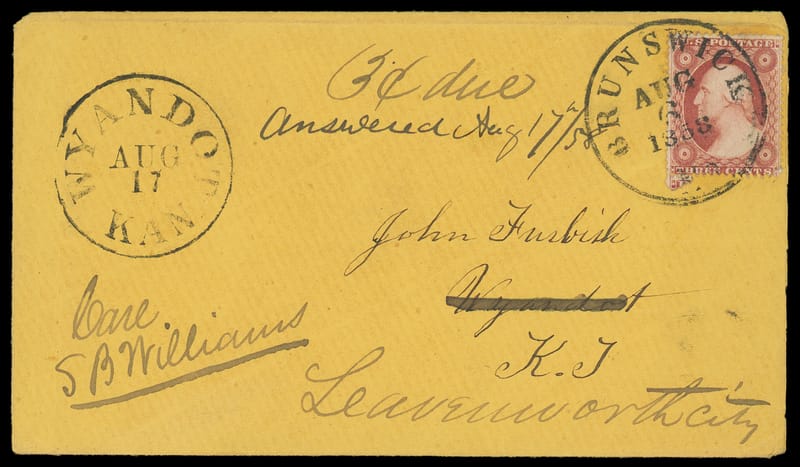 3¢ due
Answered Aug 17th/58
BRUNSWICK
AUG
6
1858
U.S. POSTAGE
THREE CENTS
WYANDOTT
AUG
17
KAN.
John Furbish
Wyandot
K. T
Care
S B Williams
Leavenworth city